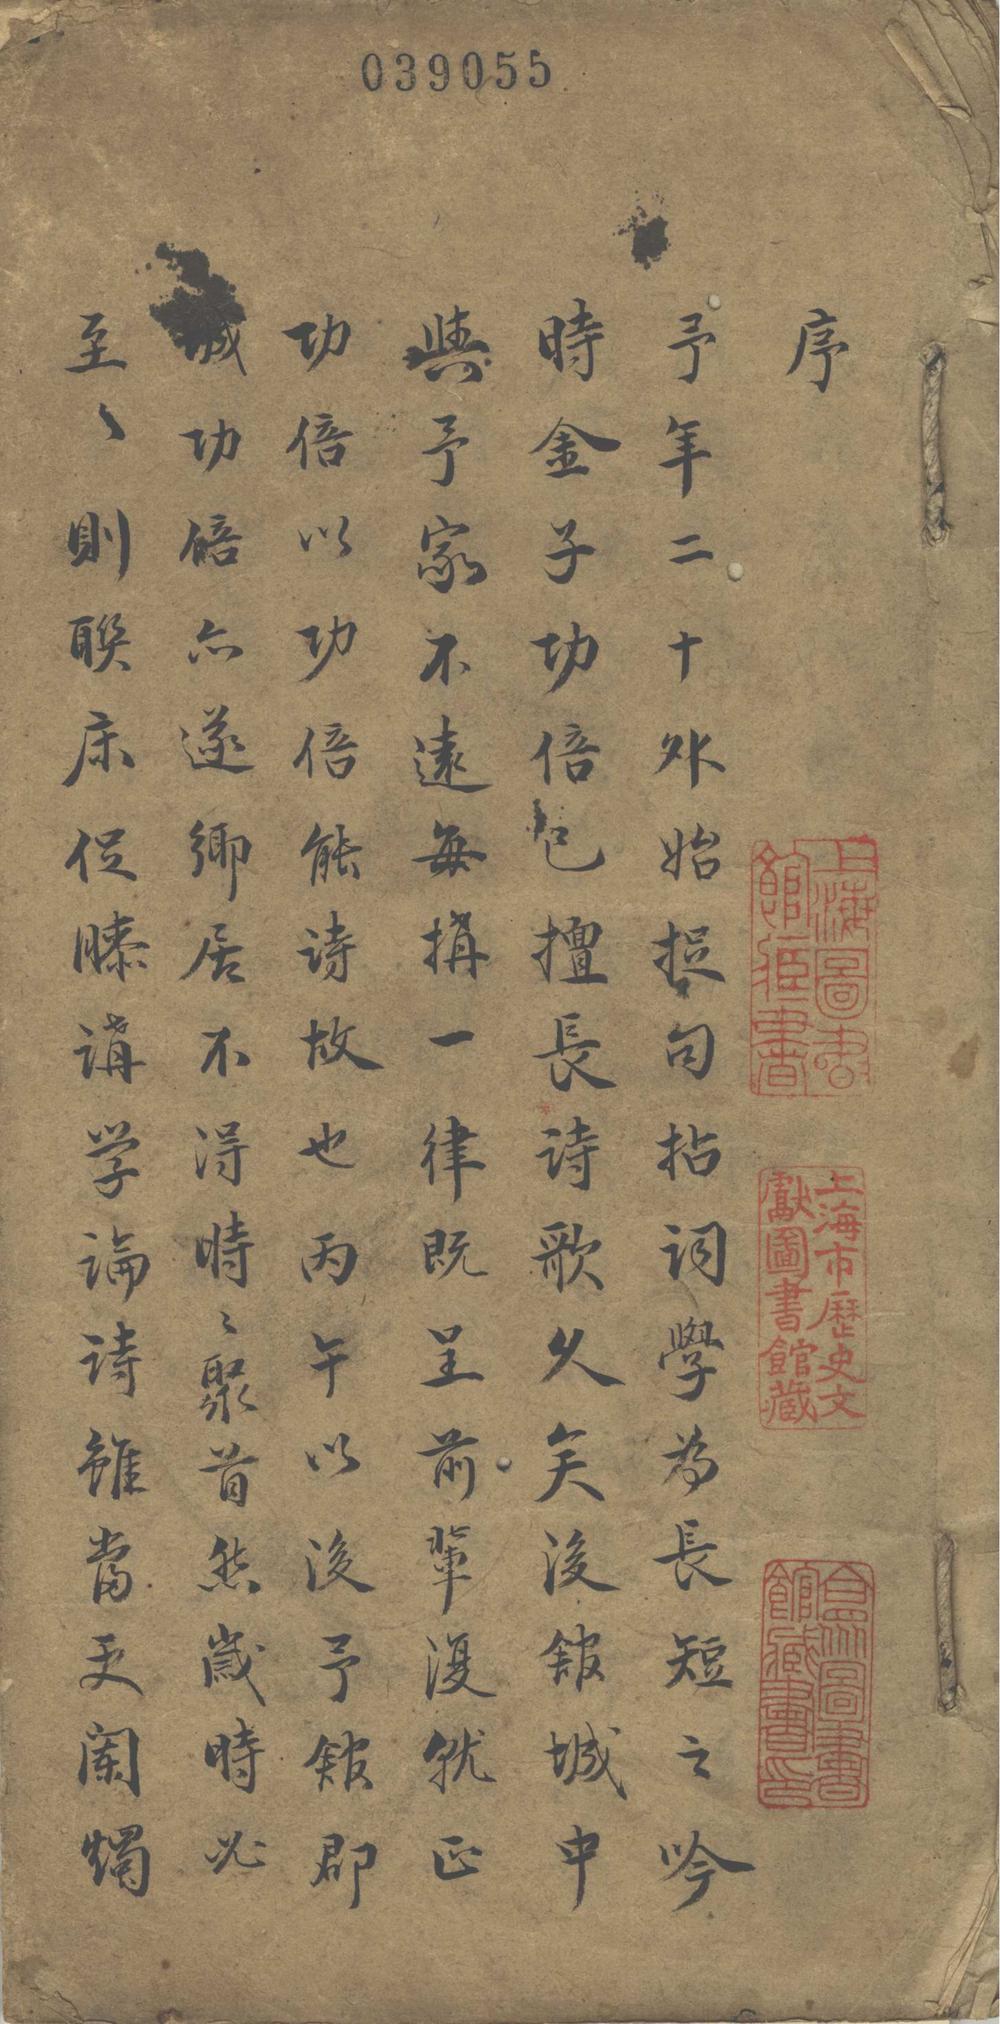 039055
序
予年二十外始捉句拈词學为長短之吟
時金子功倍已擅長诗歌久矣後舘城中
與予家不遠每搆一律既呈前輩復就正
功倍以功倍能诗故也丙午以後予舘郡
城功倍亦遂鄉居不得時〻聚首然歲時必
至〻則聯床促膝講学論诗雖當更闌燭
上海圖書
館藏書
上海市歷史文
獻圖書館藏
合眾圖書
館藏書印